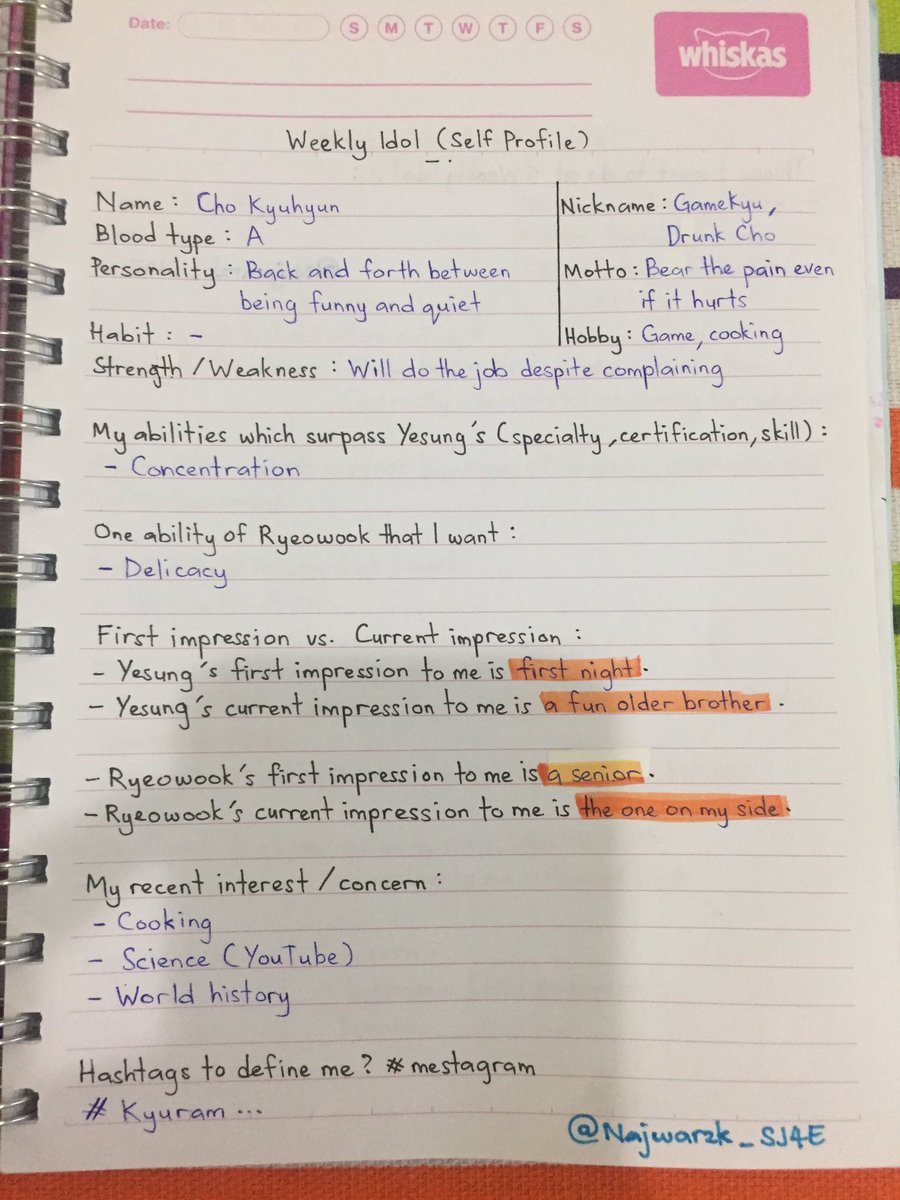 Date:
S M T W T F S
whiskas
Weekly Idol (Self Profile)
Name : Cho Kyuhyun
Blood type : A
Personality : Back and forth between
being funny and quiet
Habit : -
Nickname : GameKyu,
Drunk Cho
Motto : Bear the pain even
if it hurts
Hobby : Game, cooking
Strength / Weakness : Will do the job despite complaining
My abilities which surpass Yesung's (specialty, certification, skill) :
- Concentration
One ability of Ryeowook that I want :
- Delicacy
First impression vs. Current impression :
- Yesung's first impression to me is first night.
- Yesung's current impression to me is a fun older brother.
- Ryeowook's first impression to me is a senior.
- Ryeowook's current impression to me is the one on my side.
My recent interest / concern :
- Cooking
- Science (YouTube)
- World history
Hashtags to define me? #mestagram
# Kyuram ...
@Najwarzk_SJ4E